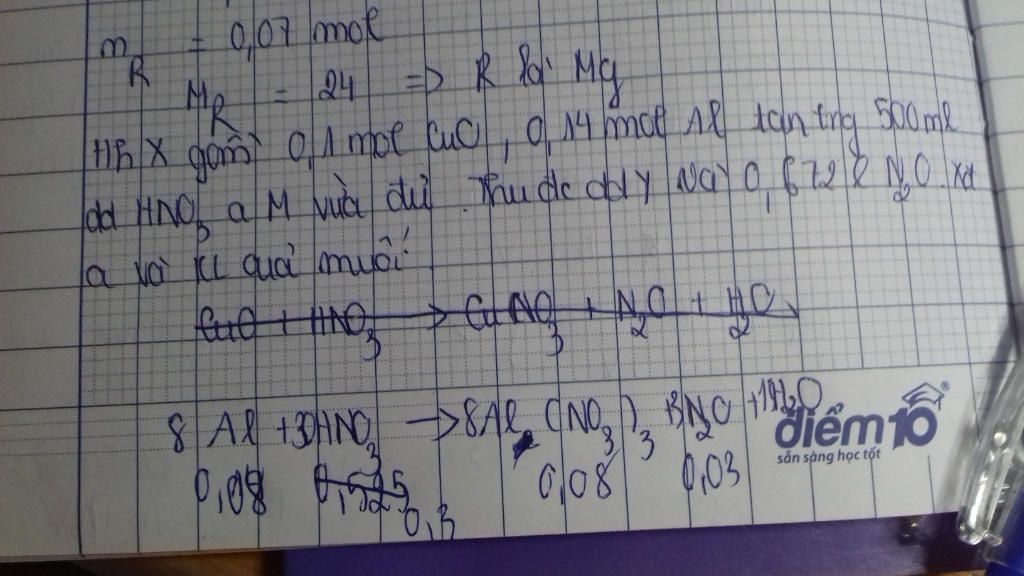 m_R = 0,07 mol
M_R = 24 => R là Mg
Hh X gồm 0,1 mol CuO, 0,14 mol Al tan trg 500ml
dd HNO3 a M vừa đủ. Thu đc dd Y và 0,672 l N2O. xđ
a và kl quả muối
CuO + HNO3 → CuNO3 + N2O + H2O
8 Al + 30HNO3 → 8Al (NO3)3 + 3N2O + H2O
0,08 0,3 0,08 0,03
điểm10®
sẵn sàng học tốt